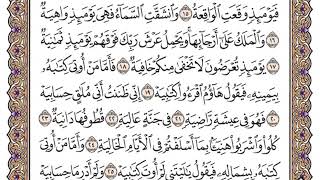 فَيَوْمَئِذٍ وَقَعَتِ الْوَاقِعَةُ ١٥ وَانشَقَّتِ السَّمَاءُ فَهِيَ يَوْمَئِذٍ وَاهِيَةٌ
١٦ وَالْمَلَكُ عَلَىٰ أَرْجَائِهَا وَيَحْمِلُ عَرْشَ رَبِّكَ فَوْقَهُمْ يَوْمَئِذٍ ثَمَانِيَةٌ
١٧ يَوْمَئِذٍ تُعْرَضُونَ لَا تَخْفَىٰ مِنكُمْ خَافِيَةٌ ١٨ فَأَمَّا مَنْ أُوتِيَ كِتَابَهُ
بِيَمِينِهِ فَيَقُولُ هَاؤُمُ اقْرَءُوا كِتَابِيَهْ ١٩ إِنِّي ظَنَنتُ أَنِّي مُلَاقٍ حِسَابِيَهْ
٢٠ فَهُوَ فِي عِيشَةٍ رَّاضِيَةٍ ٢١ فِي جَنَّةٍ عَالِيَةٍ ٢٢ قُطُوفُهَا دَانِيَةٌ ٢٣
كُلُوا وَاشْرَبُوا هَنِيئًا بِمَا أَسْلَفْتُمْ فِي الْأَيَّامِ الْخَالِيَةِ ٢٤ وَأَمَّا مَنْ أُوتِيَ
كِتَابَهُ بِشِمَالِهِ فَيَقُولُ يَا لَيْتَنِي لَمْ أُوتَ كِتَابِيَهْ ٢٥ وَلَمْ أَدْرِ مَا حِسَابِيَهْ